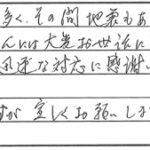 多く、その間地震もあ
んには大変お世話に
迅速な対応に感謝
が宜しくお願いしま